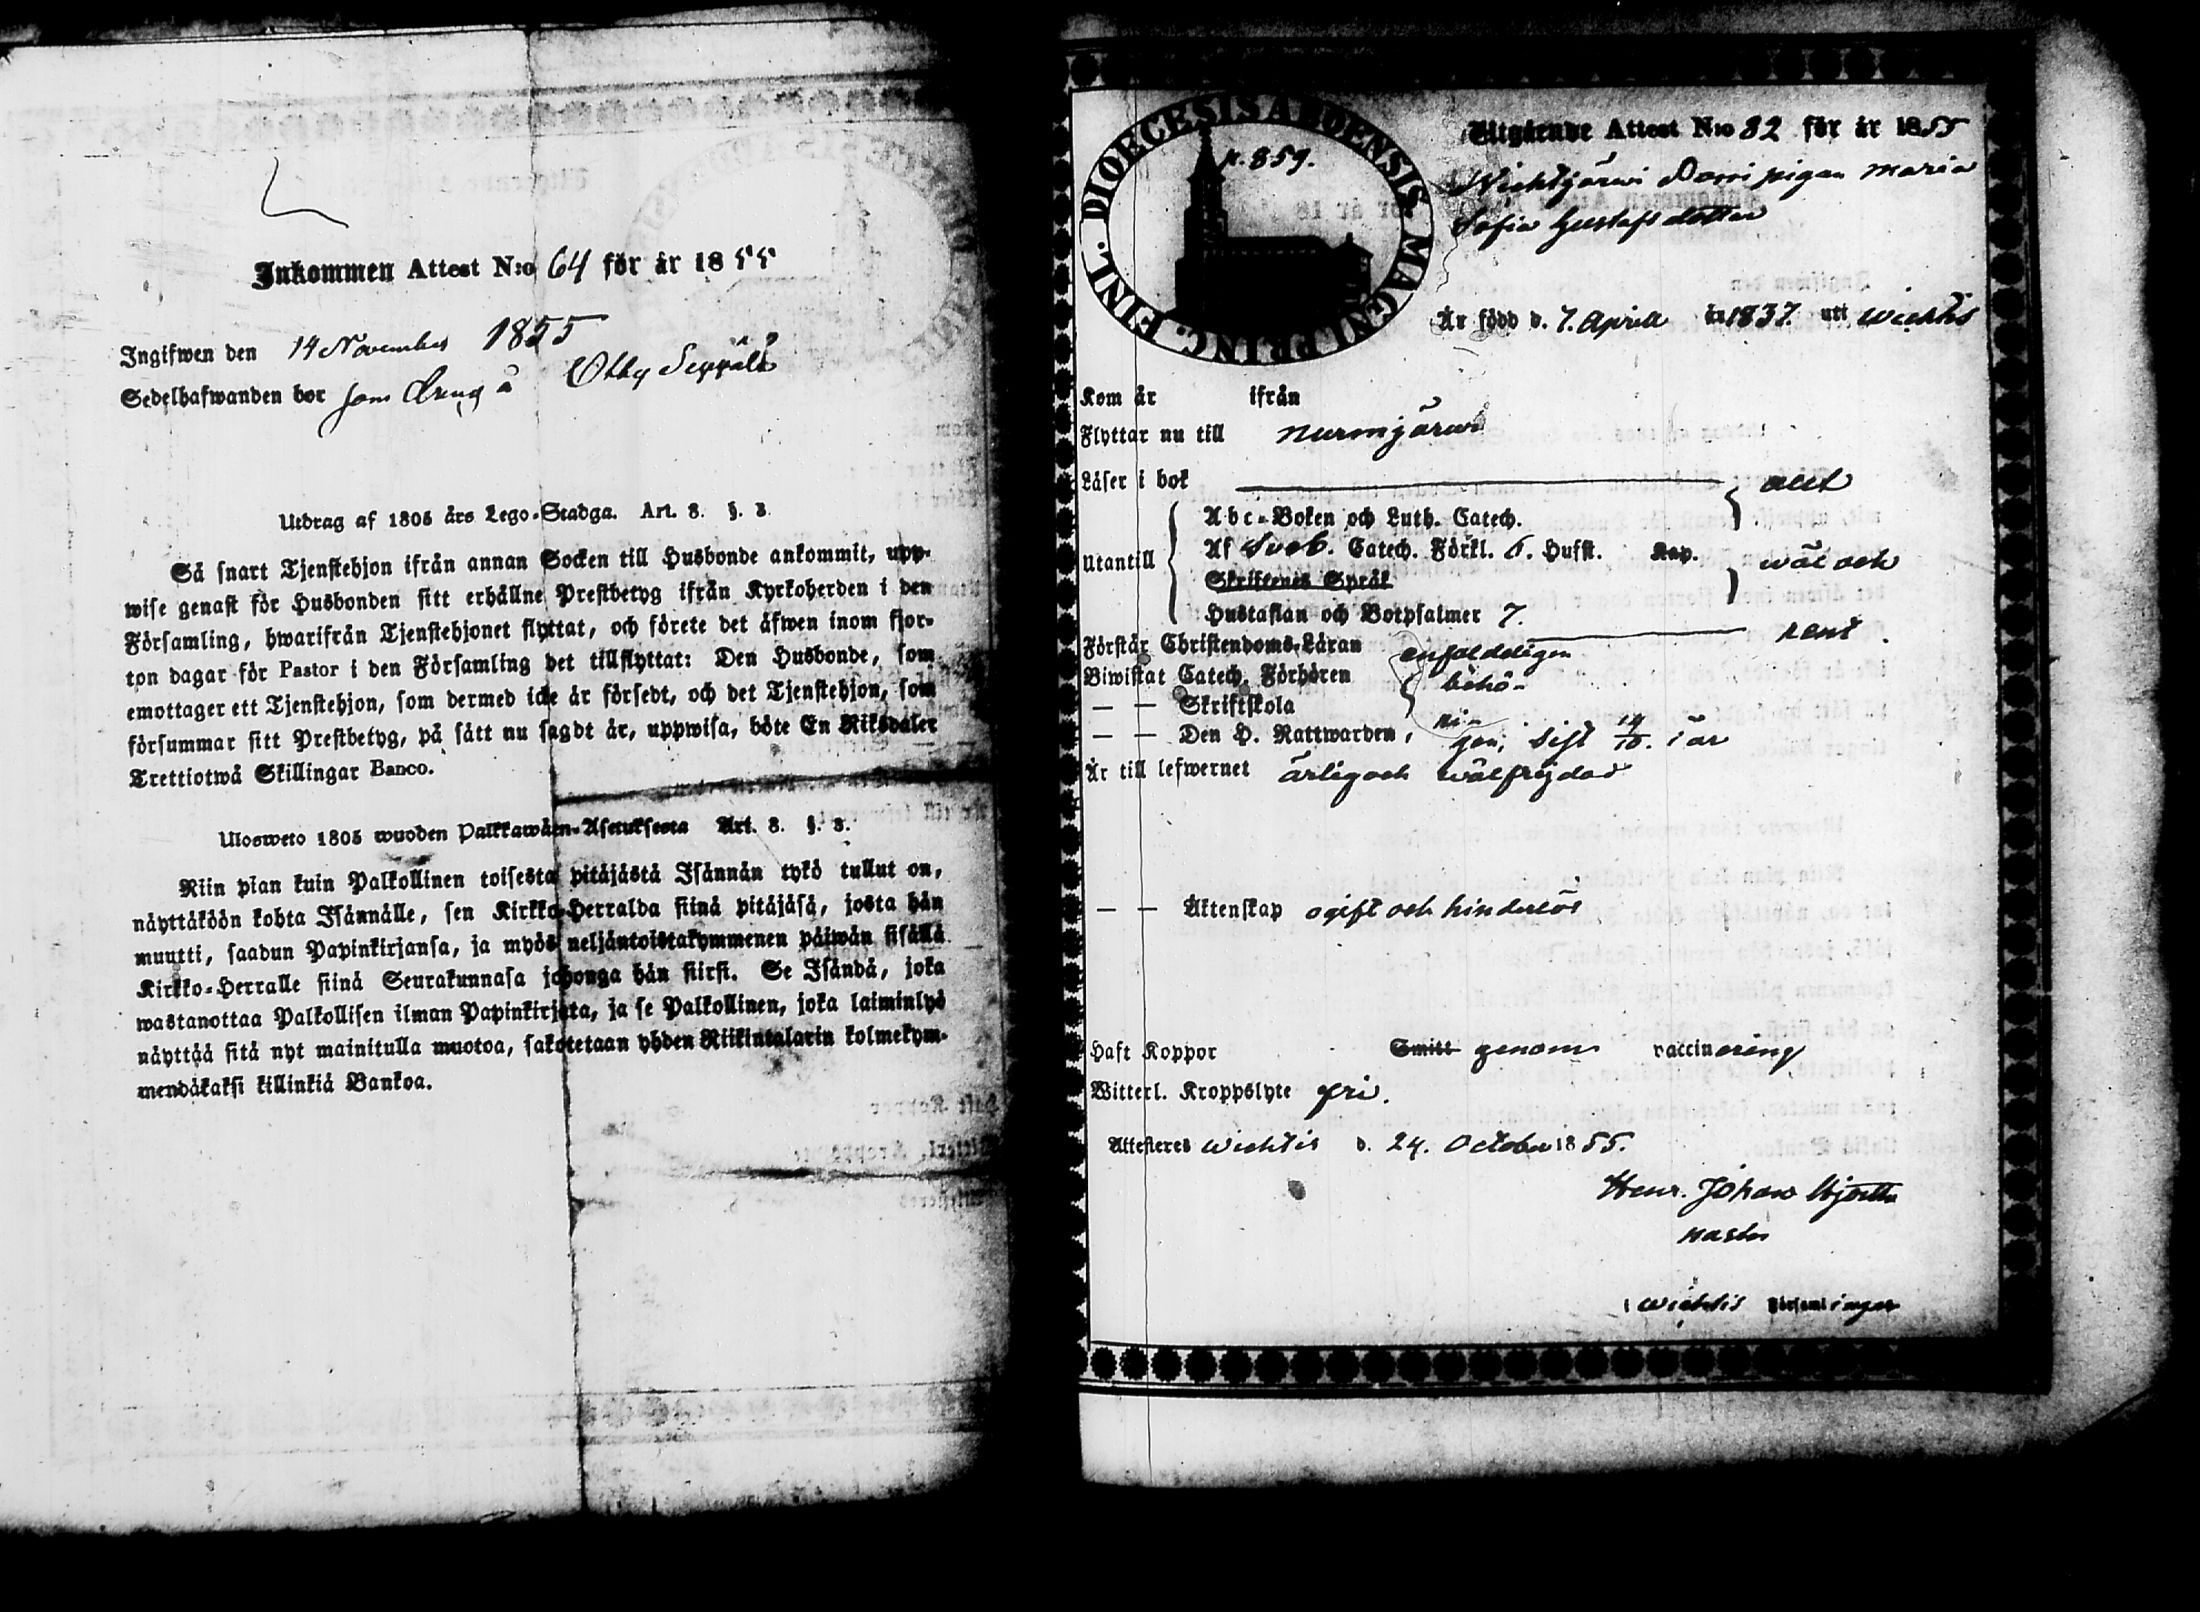 Inkommen Attest N:o 64 för år 1855
Ingifwen den 14 November 1855
Sedelhafwanden bor som Dreng å Otby Seppälä
Utdrag af 1805 års Lego-Stadga. Art. 8. §. 3.
Så snart Tjenstehjon ifrån annan Socken till Husbonde ankommit, upp-
wise genast för Husbonden sitt erhållne Prestbetyg ifrån Kyrkoherden i den
Församling, hwarifrån Tjenstehjonet flyttat, och förete det äfwen inom fjor-
ton dagar för Pastor i den Församling det tillflyttat: Den Husbonde, som
emottager ett Tjenstehjon, som dermed icke är försedt, och det Tjenstehjon, som
försummar sitt Prestbetyg, på sätt nu sagdt är, uppwisa, böte En Riksdaler
Trettiotwå Skillingar Banco.
Ulosweto 1805 wuoden Palkkawäen-Asetuksesta Art. 8. §. 3.
Niin pian kuin Palkollinen toisesta pitäjästä Isännän tykö tullut on,
näyttäköön kohta Isännälle, sen Kirkko-Herralda siinä pitäjäsä, josta hän
muutti, saadun Papinkirjansa, ja myös neljäntoistakymmenen päiwän sisällä
Kirkko-Herralle siinä Seurakunnasa johonga hän siirsi. Se Isändä, joka
wastanottaa Palkollisen ilman Papinkirjata, ja se Palkollinen, joka laiminlyö
näyttää sitä nyt mainitulla muotoa, sakotetaan yhden Riikintalarin kolmekym-
mendäkaksi killinkiä Bankoa.
DIOECESIS ABOENSIS MAGNI PRINC. FINL.
p. 859.
Utgående Attest N:o 82 för år 1855
Wichtjärwi pigan Maria
Sofia Gustafsdotter
Är född d. 7. Aprill år 1837. uti Wichtis
Kom år ifrån
Flyttar nu till Nurmijärwi
Läser i bok allt
Utantill
Abc-Boken och Luth. Catech.
Af Sveb. Catech. Förkl. 6. Hufst. Kap. wäl och
Skriftenes Språk
Hustaflan och Botpsalmer 7. rent.
Förstår Christendoms-Läran enfaldeligen
Biwistat Catech. Förhören behö-
— — Skriftskola
— — Den H. Nattwarden, rigen, sist 14/10. i år
Är till lefwernet ärlig och wälfrejdad
— — Äktenskap ogift och hinderlös
Haft Koppor Smitt genom vaccinering
Witterl. Kroppslyte fri.
Attesteres Wichtis d. 24. October 1855.
Henr. Johan Hjorth
pastor
i Wichtis Församlingar